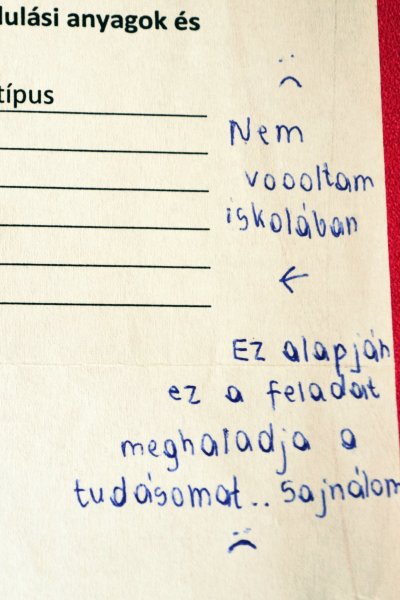 dulási anyagok és
típus
Nem
voooltam
iskolában
Ez alapján
ez a feladat
meghaladja a
tudásomat.. sajnálom